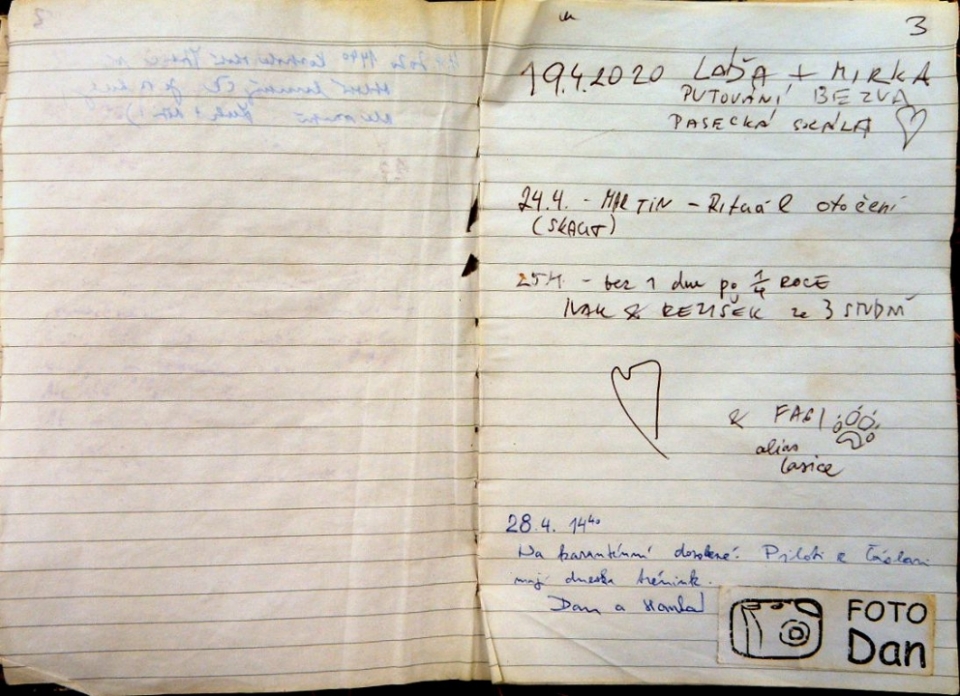 3
19.4.2020 LAĎA + MIRKA
PUTOVÁNÍ BEZVA
PASECKÁ SKÁLA
24.4. - MARTIN - Rituál otočení
(SKAUT)
25.4. - bez 1 dne po 1/4 ROCE
IVAK & REZIŠEK ze 3 STUDNÍ
& FAGI
alias
lasice
28.4. 14⁴⁰
Na karanténní dovolené. Piloti z Čáslavi
mají dneska trénink.
Dan a
FOTO
Dan